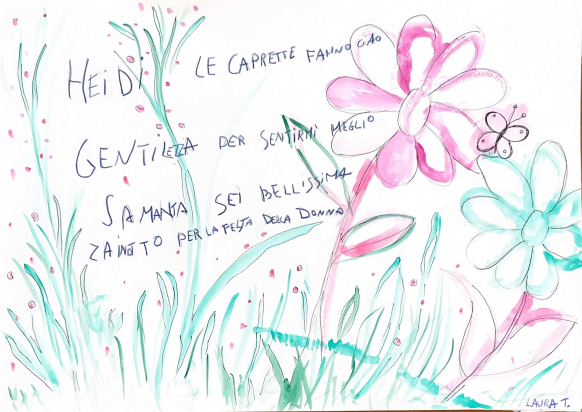 HEIDI LE CAPRETTE FANNO CIAO
GENTILEZZA PER SENTIRMI MEGLIO
SAMANTA SEI BELLISSIMA
ZAINOTTO PER LA FESTA DELLA DONNA
LAURA T.